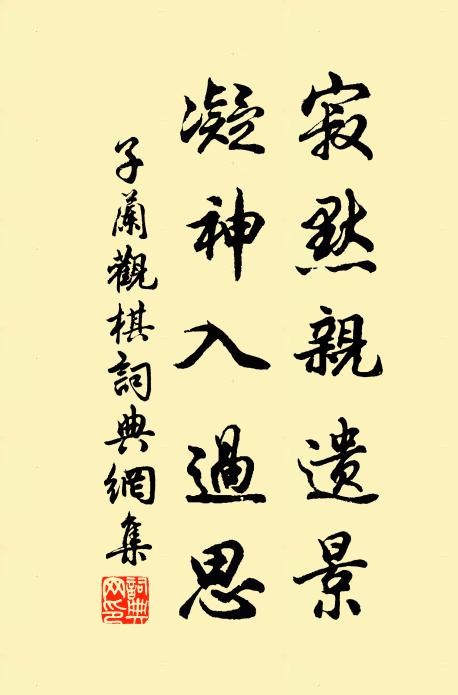 寂默親遺景
凝神入過思
子蘭觀棋詞典網集
詞典网印